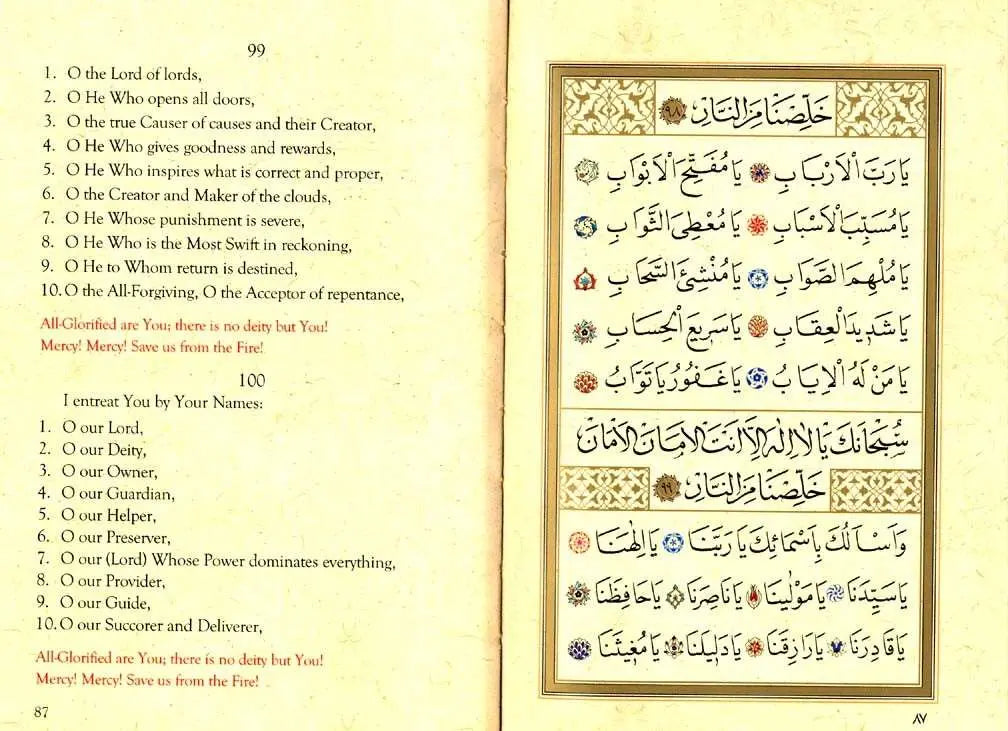 99
1. O the Lord of lords,
2. O He Who opens all doors,
3. O the true Causer of causes and their Creator,
4. O He Who gives goodness and rewards,
5. O He Who inspires what is correct and proper,
6. O the Creator and Maker of the clouds,
7. O He Whose punishment is severe,
8. O He Who is the Most Swift in reckoning,
9. O He to Whom return is destined,
10. O the All-Forgiving, O the Acceptor of repentance,
All-Glorified are You; there is no deity but You!
Mercy! Mercy! Save us from the Fire!
100
I entreat You by Your Names:
1. O our Lord,
2. O our Deity,
3. O our Owner,
4. O our Guardian,
5. O our Helper,
6. O our Preserver,
7. O our (Lord) Whose Power dominates everything,
8. O our Provider,
9. O our Guide,
10. O our Succorer and Deliverer,
All-Glorified are You; there is no deity but You!
Mercy! Mercy! Save us from the Fire!
87
خَلِّصْنَا مِنَ النَّارِ ٩٨
يَا رَبَّ الْاَرْبَابِ يَا مُفَتِّحَ الْاَبْوَابِ
يَا مُسَبِّبَ الْاَسْبَابِ يَا مُعْطِيَ الثَّوَابِ
يَا مُلْهِمَ الصَّوَابِ يَا مُنْشِئَ السَّحَابِ
يَا شَدِيدَ الْعِقَابِ يَا سَرِيعَ الْحِسَابِ
يَا مَنْ لَهُ الْاِيَابُ يَا غَفُورُ يَا تَوَّابُ
سُبْحَانَكَ يَا لَا اِلٰهَ اِلَّا اَنْتَ الْاَمَانَ الْاَمَانَ
خَلِّصْنَا مِنَ النَّارِ ٩٩
وَاَسْاَلُكَ بِاَسْمَائِكَ يَا رَبَّنَا يَا اِلٰهَنَا
يَا سَيِّدَنَا يَا مَوْلٰينَا يَا نَاصِرَنَا يَا حَافِظَنَا
يَا قَادِرَنَا يَا رَازِقَنَا يَا دَلِيلَنَا يَا مُغِيثَنَا
٨٧